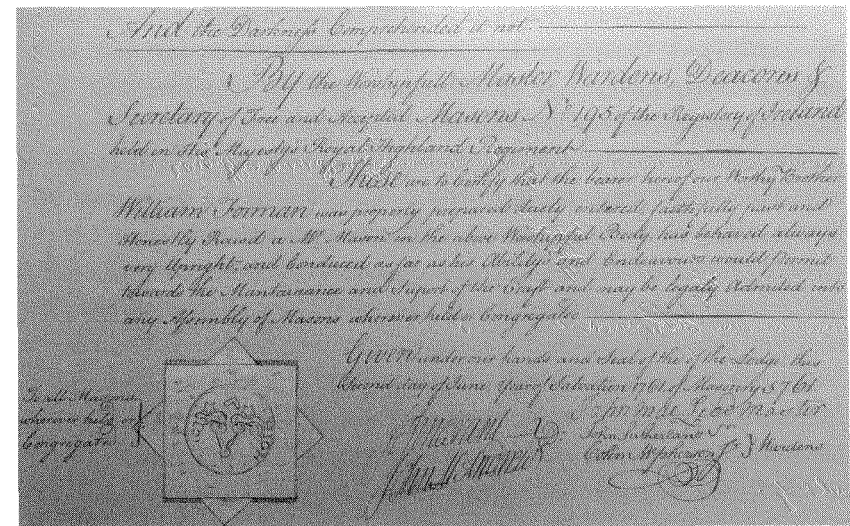 And the Darkness Comprehended it not
By the Worshipfull Master Wardens, Deacons &
Secretary of Free and Accepted Masons No 195 of the Registery of Ireland
held in His Majestys Royal Highland Regiment
These are to Certify that the bearer hereof our Worthy Brother
William Forman was properly prepared duely entered, faithfully past and
Honestly Raised a Mr Mason in the above Worshipful Body has behaved always
very Upright, and Conduced as far as his Ability and Endeavours would Permit
towards the Maintainance and Support of the Craft and may be legally Admitted into
any Assembly of Masons wherever held or Congregated
Given under our hands and Seal of the of the Lodge this
Second day of June Year of Salvation 1761 of Masonry 5761
To all Masons
wherever held or
Congregated
Master
John Sutherland Sr
Colin Mcpherson Jr } Wardens